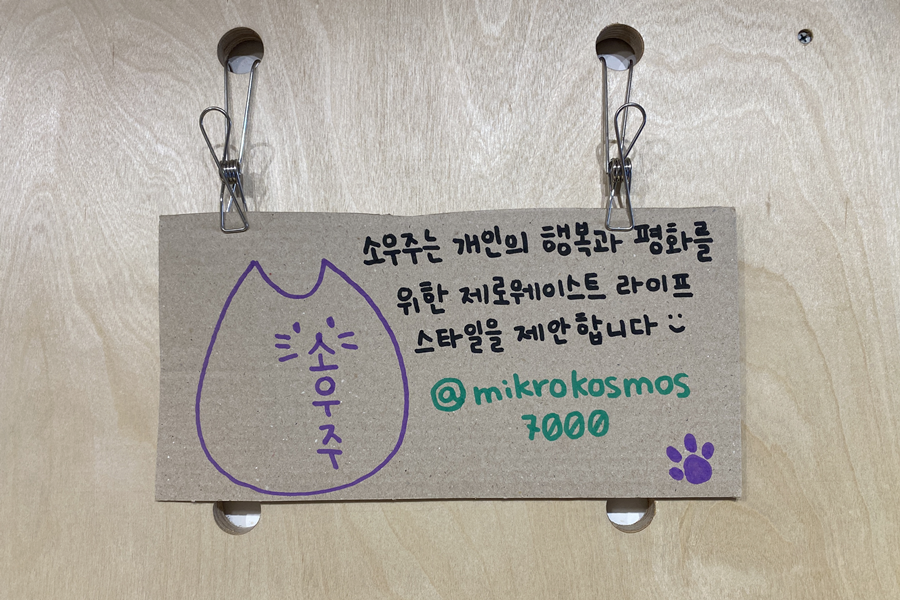 소우주
소우주는 개인의 행복과 평화를
위한 제로웨이스트 라이프
스타일을 제안합니다
@mikrokosmos
7000